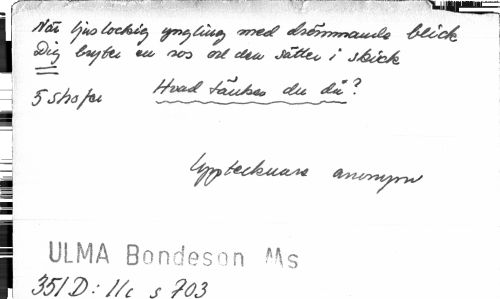 När ljuslockig yngling med drömmande blick
Dig bryter en ros och den sätter i skick
5 strofer Hvad tänker du då?
Upptecknare anonym
ULMA Bondeson Ms
351 D: 11c s 703